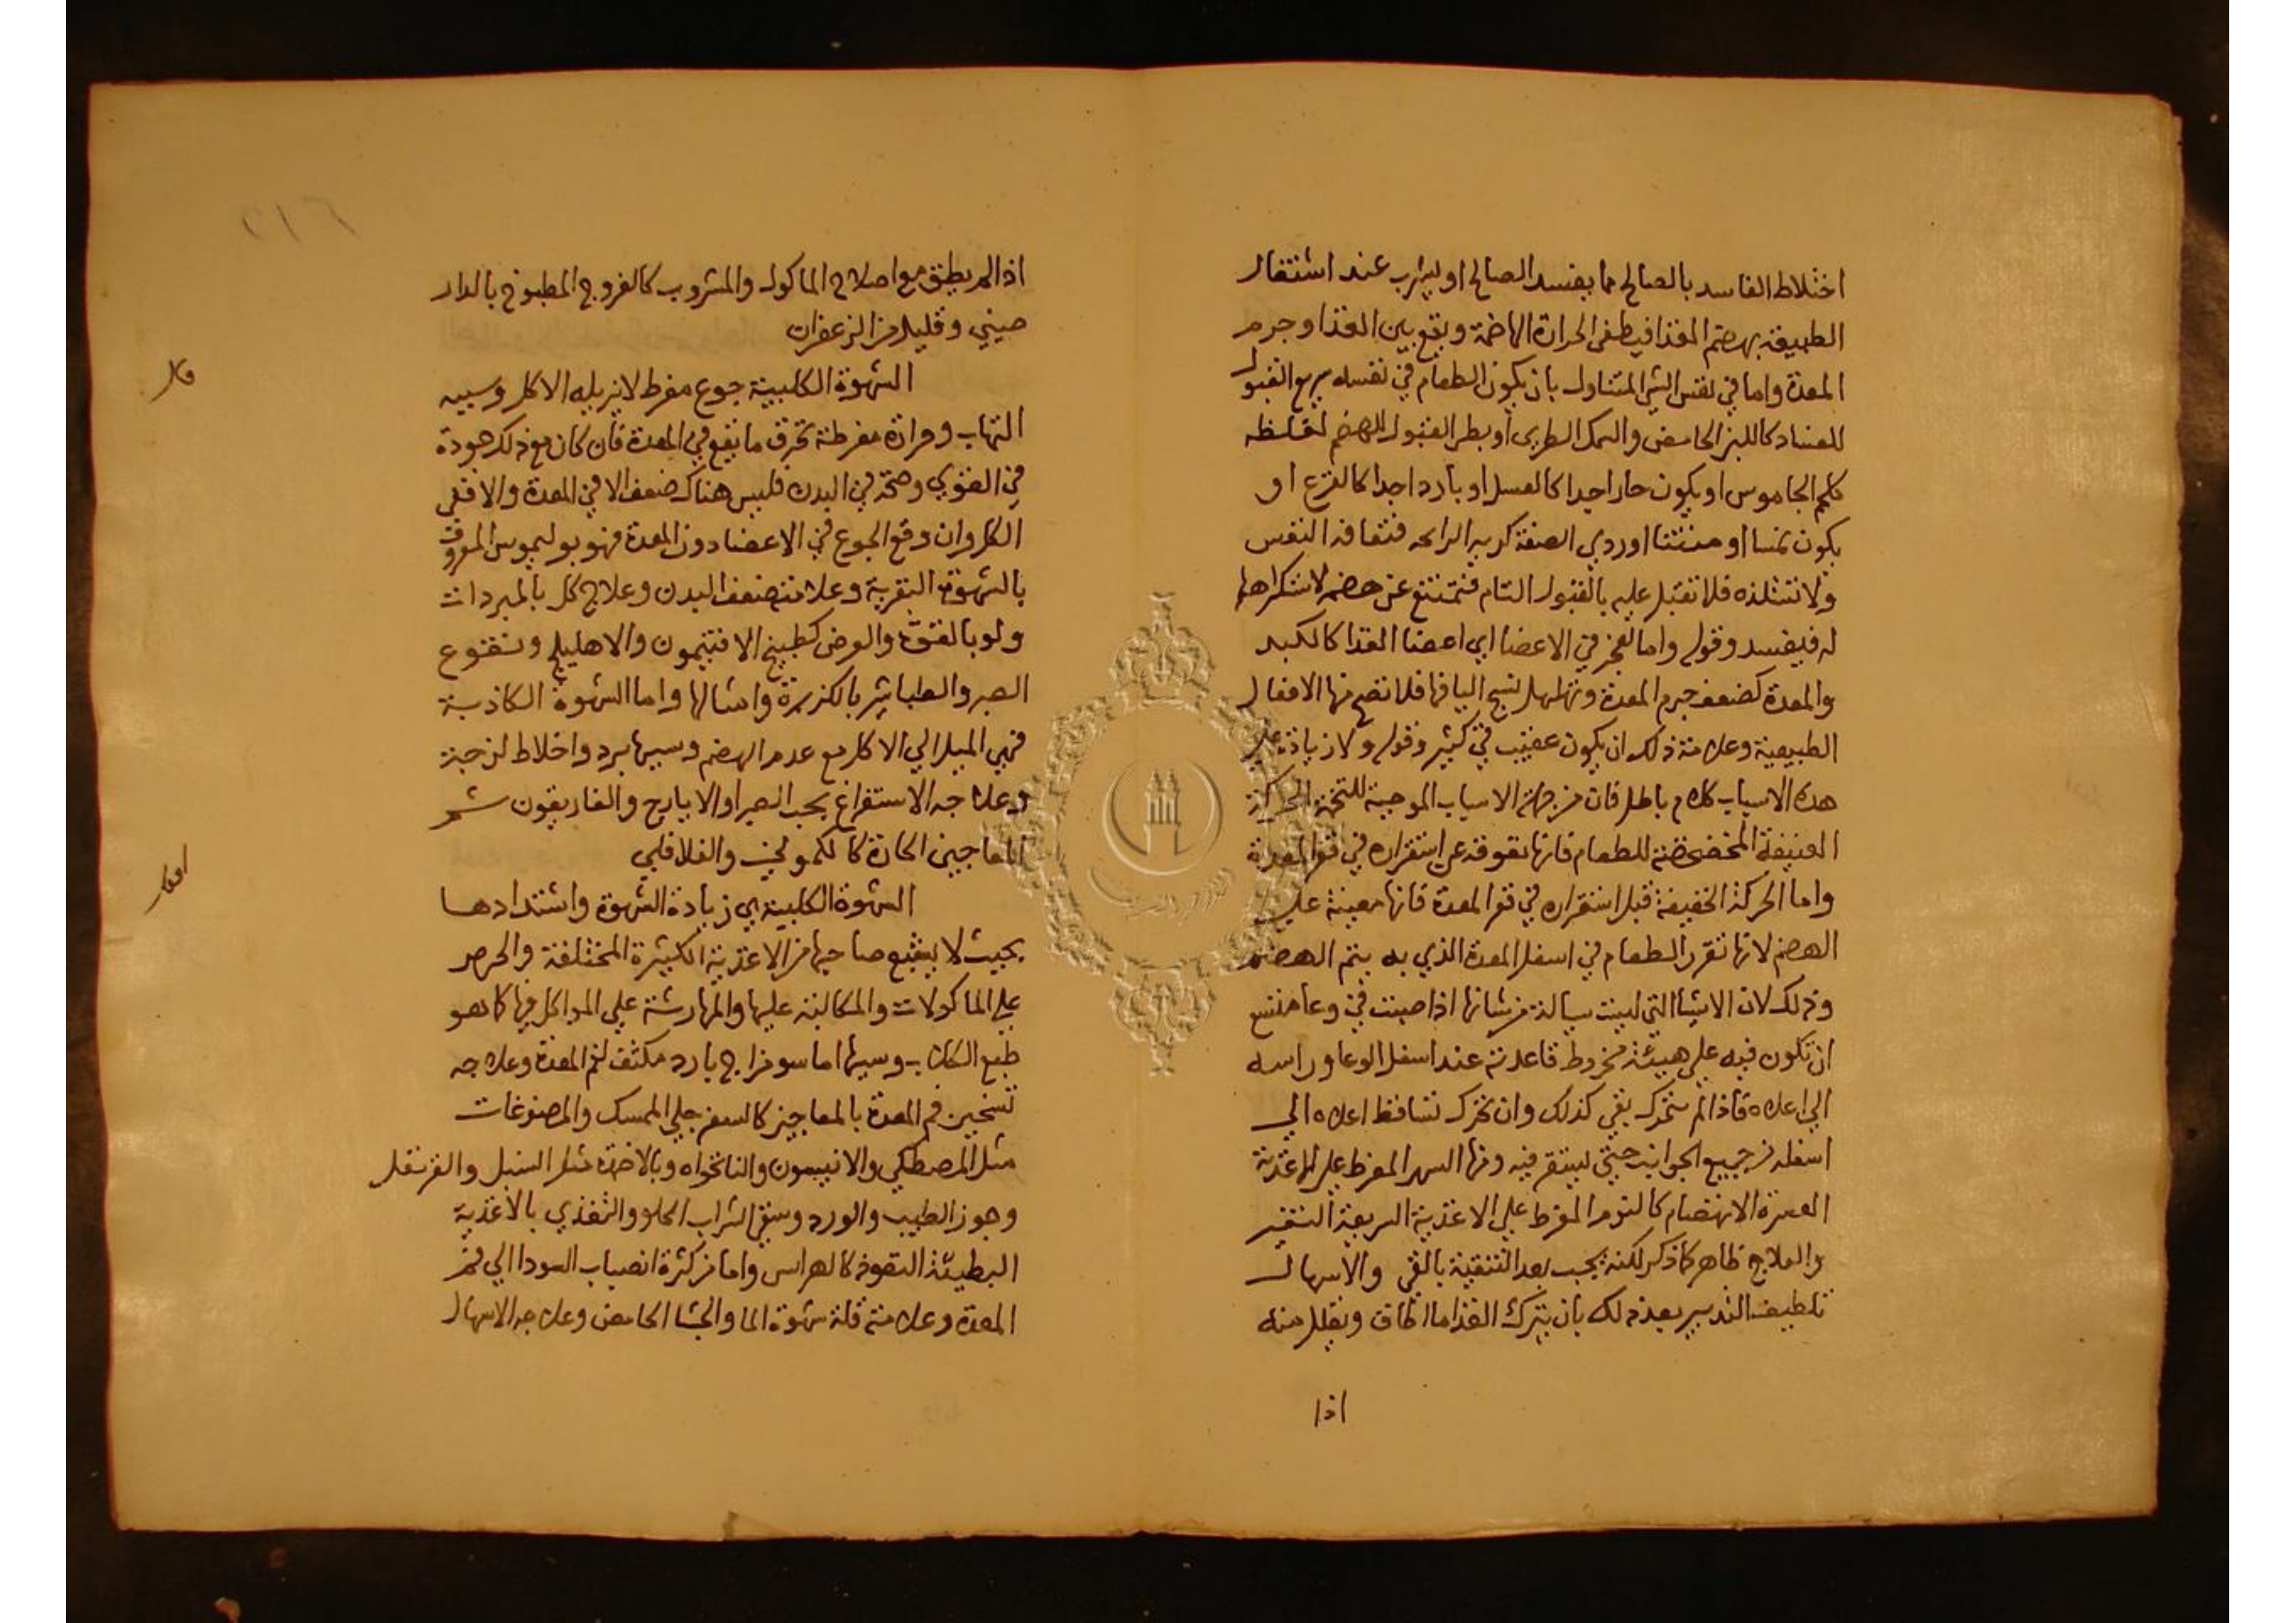 اختلاط الفاسد بالصالح مما يفسد الصالح او ليشرب عند اشتغال
الطبيعة بهضم الغذا فيطفى الحرارة الهاضمة ويقع بين الغذا وجرم
المعدة واما في نفس الشي المتناول بان يكون الطعام في نفسه سريع القبول
للفساد كاللبن الحامض والسمك الطري او بطي القبول للهضم لغلظه
كلحم الجاموس او يكون حارا جدا كالعسل او باردا جدا كالقرع او
يكون نمسا او منتنا او ردي الصنعة كريه الرايحه فتعافه النفس
ولا تستلذه فلا تقبل عليه بالقبول التام فتمتنع عن هضمه لاستكراهها
له فيفسد وقوله واما لعجز في الاعضا اي اعضا الغذا كالكبد
والمعدة كضعف جرم المعدة وتهلهل نسج اليافها فلا تصح منها الافعال
الطبيعية وعلامة ذلك ان يكون عقيب في كثير وقوله ولا زيادة على
هذه الاسباب كلام باطل فان من جملة الاسباب الموجبة للتخمة الحركة
العنيفة المخضخضة للطعام فانها تعوقه عن استقراره في قعر المعدة
واما الحركة الخفيفة قبل استقراره في قعر المعدة فانها معينة علي
الهضم لانها تقرر الطعام في اسفل المعدة الذي به يتم الهضم
وذلك لان الاشيا التي ليست سيالة من شانها اذا صبت في وعا متسع
ان تكون فيه على هيئة مخروط قاعدته عند اسفل الوعا وراسه
الى اعلاه فاذا لم يتحرك بقي كذلك وان تحرك تساقط اعلاه الي
اسفله من جميع الجوانب حتى ليستقر فيه ومنها السهر المفرط على الاغذية
العسرة الانهضام كالنوم المفرط على الاغذية السريعة التغير
والعلاج ظاهر كما ذكر لكنه يجب بعد التنقية بالقي والاسهال
تلطيف التدبير بعد ذلك بان يترك الغذا ما اطاق ويقلل منه
اذا
٢١٦
اذا لم يطق مع اصلاح الماكول والمشروب كالفروج المطبوخ بالدار
صيني وقليل من الزعفران
قال
الشهوة الكلبية جوع مفرط لا يزيله الاكل وسببه
التهاب وحرارة مفرطة تحرق ما يقع في المعدة فان كان مع ذلك جودة
في القوي وصحة في البدن فليس هناك ضعف الا في المعدة والا ففي
الكل وان وقع الجوع في الاعضا دون المعدة فهو بوليموس المعروف
بالشهوة البقرية وعلامته ضعف البدن وعلاج كل بالمبردات
ولو بالقوة والعرض كطبيخ الافتيمون والاهليلج ونقوع
الصبر والطباشير بالكزبرة وامثالها واما الشهوة الكاذبة
فهي الميل الي الاكل مع عدم الهضم وسببها برد واخلاط لزجة
وعلاجه الاستفراغ بحب الصبر او الايارج والغاريقون ثم
المعاجين الحارة كالكموني والفلافلي
اقول
الشهوة الكلبية هي زيادة الشهوة واشتدادها
بحيث لا يشبع صاحبها من الاغذية الكثيرة المختلفة والحرص
على الماكولات والمكالبة عليها والمهارشة على المواكل فيها كما هو
طبع الكلاب وسببها اما سو مزاج بارد مكثف لفم المعدة وعلاجه
تسخين فم المعدة بالمعاجين كالسفرجلي الممسك والمصنوعات
مثل المصطكي والانيسون والنانخواه وبالاضمدة مثل السنبل والقرنفل
وجوز الطيب والورد وسقي الشراب الحلو والتغذي بالاغذية
البطيئة النفوذ كالهراس واما من كثرة انصباب السودا الى فم
المعدة وعلامته قلة شهوة الما والجشا الحامض وعلاجه الاسهال